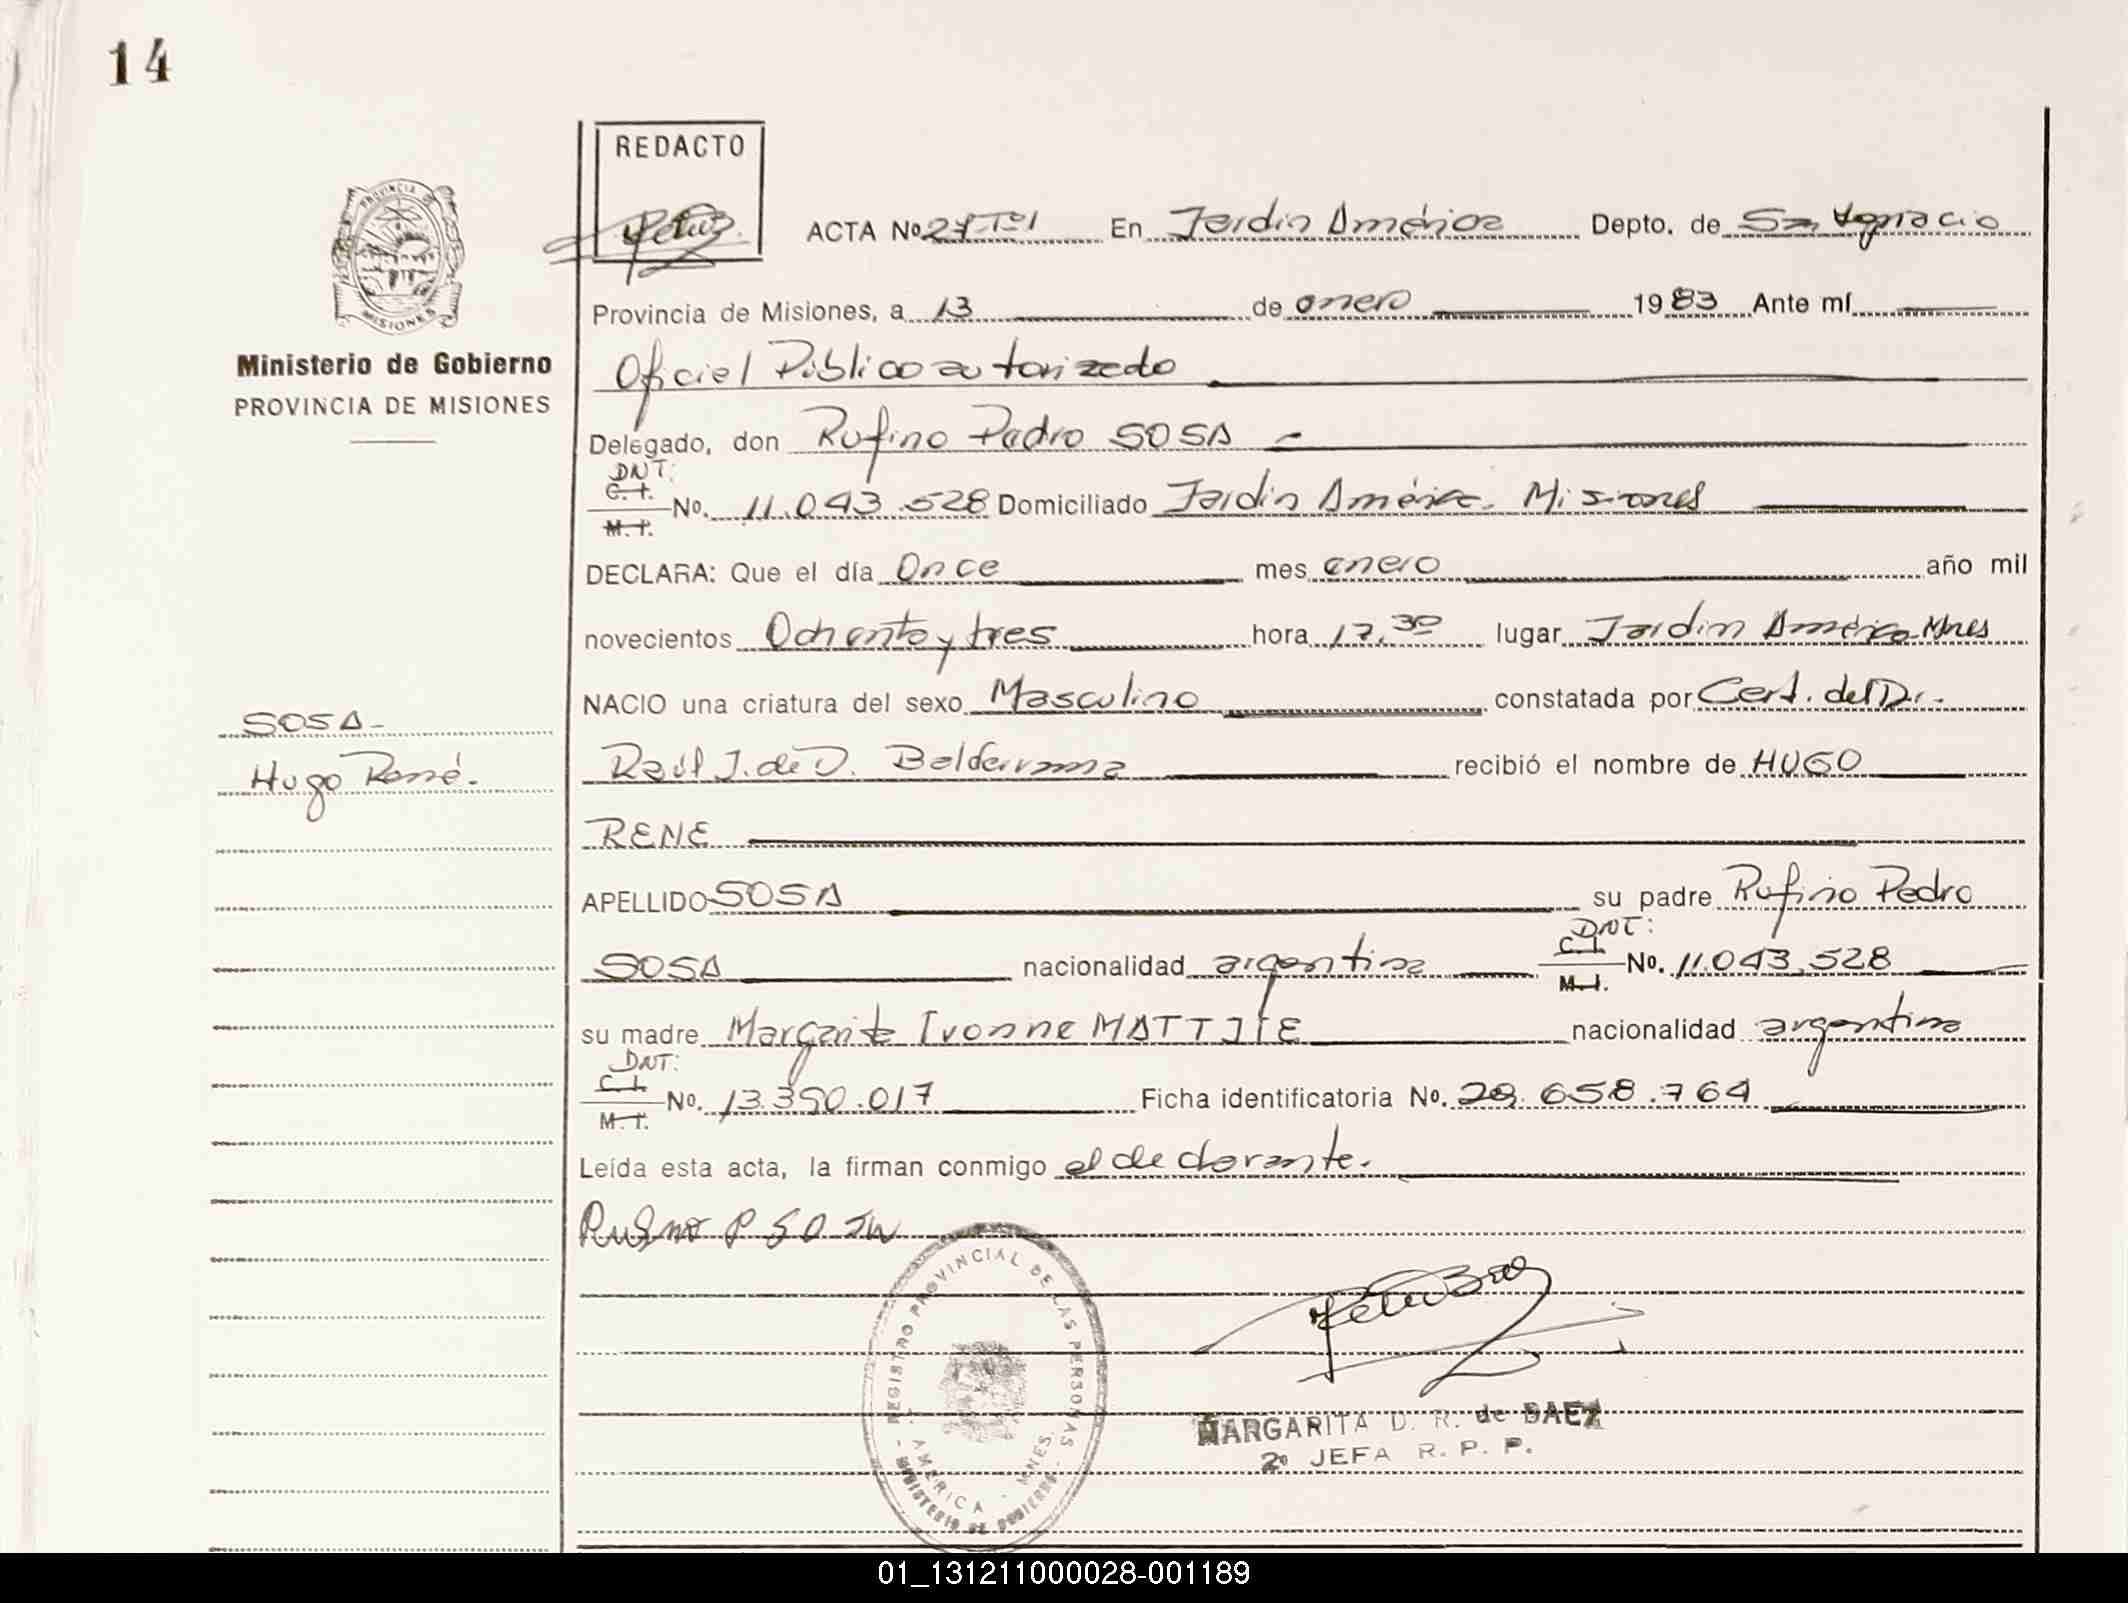 14
REDACTO
ACTA No 27-Tº1 En Jardin América Depto. de San Ignacio
Provincia de Misiones, a 13 de enero 1983 Ante mí
Ministerio de Gobierno
PROVINCIA DE MISIONES
Oficial Público autorizado
Delegado, don Rufino Pedro SOSA -
DNI:
C. I.
M. I.
No. 11.043.528 Domiciliado Jardin América. Misiones
DECLARA: Que el día Once mes enero año mil
novecientos Ochenta y tres hora 17,30 lugar Jardin América Mnes
NACIO una criatura del sexo Masculino constatada por Cert. del Dr.
SOSA-
Hugo René.
Raúl J. de D. Balderrama recibió el nombre de HUGO
RENE
APELLIDO SOSA su padre Rufino Pedro
DNI:
SOSA nacionalidad argentina C. I. No. 11.043.528
M. I.
su madre Margarita Ivonne MATTJIE nacionalidad argentina
DNI:
C. I.
M. I.
No. 13.390.017 Ficha identificatoria No. 29.658.764
Leída esta acta, la firman conmigo el declarante.
Rufino P SOSA
REGISTRO PROVINCIAL DE LAS PERSONAS
AMERICA - MNES.
MINISTERIO DE GOBIERNO
MARGARITA D. R. de BAEZ
2º JEFA R. P. P.
01_131211000028-001189